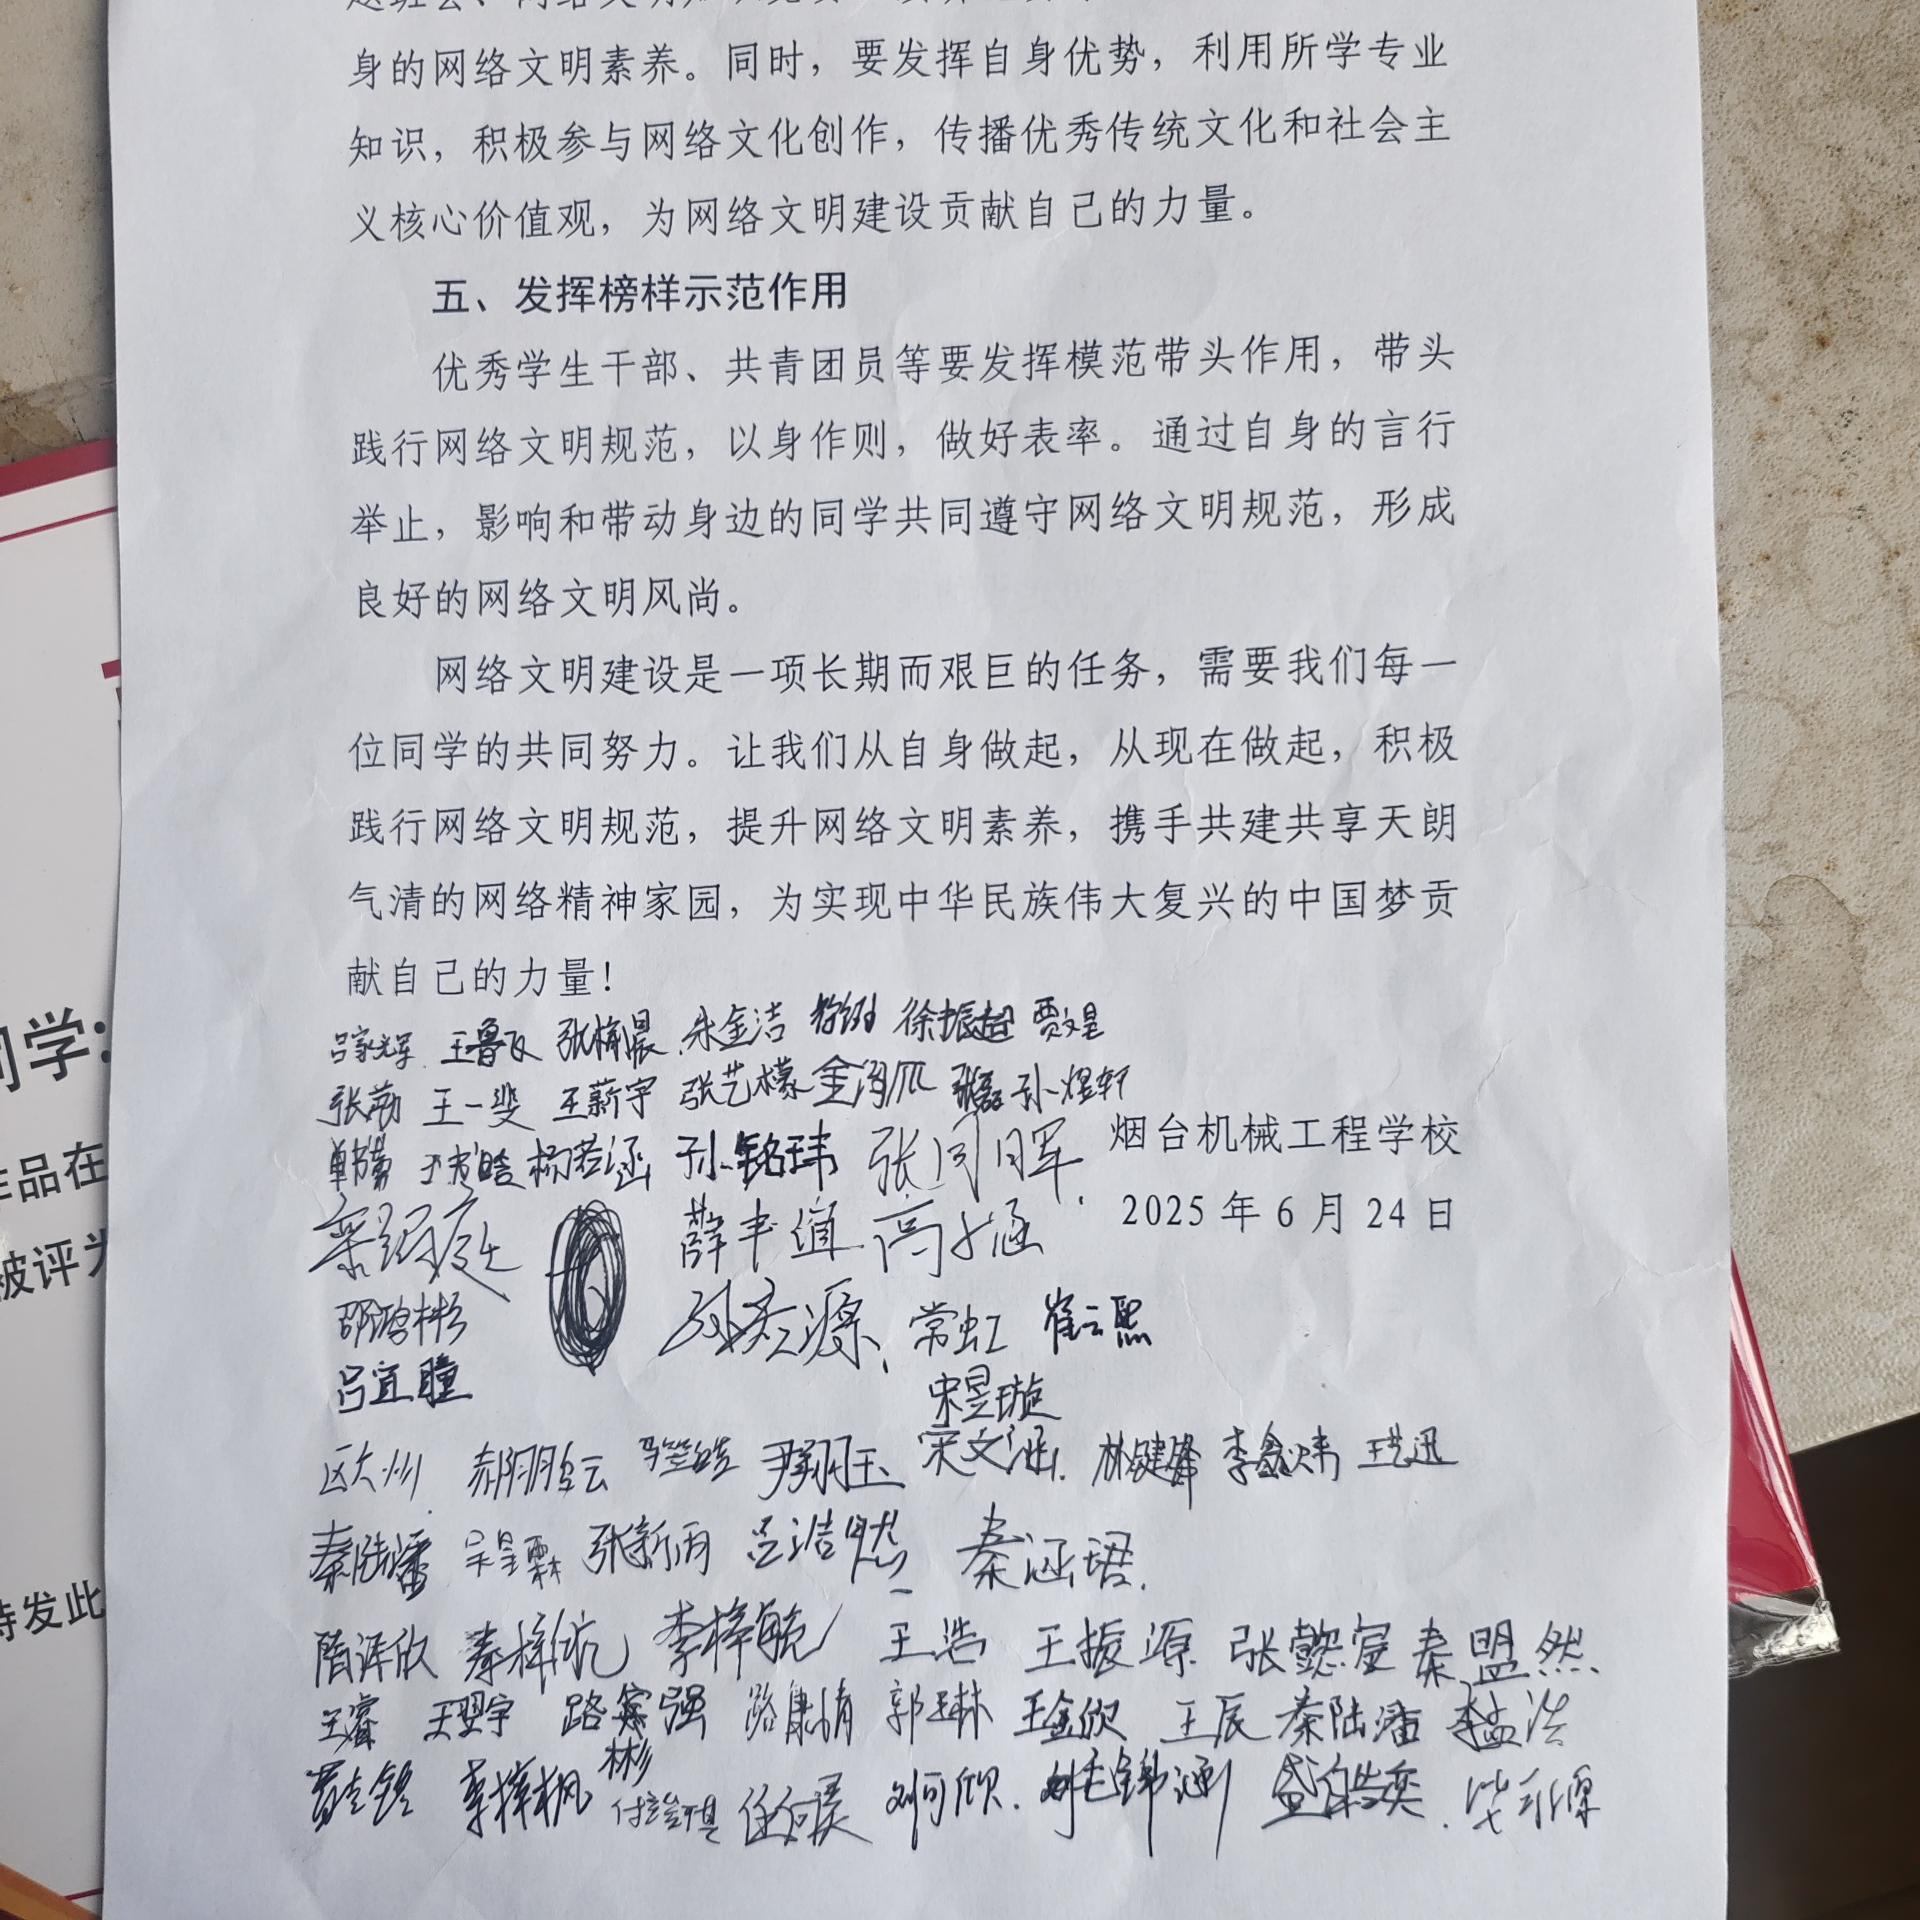 身的网络文明素养。同时，要发挥自身优势，利用所学专业
知识，积极参与网络文化创作，传播优秀传统文化和社会主
义核心价值观，为网络文明建设贡献自己的力量。
五、发挥榜样示范作用
优秀学生干部、共青团员等要发挥模范带头作用，带头
践行网络文明规范，以身作则，做好表率。通过自身的言行
举止，影响和带动身边的同学共同遵守网络文明规范，形成
良好的网络文明风尚。
网络文明建设是一项长期而艰巨的任务，需要我们每一
位同学的共同努力。让我们从自身做起，从现在做起，积极
践行网络文明规范，提升网络文明素养，携手共建共享天朗
气清的网络精神家园，为实现中华民族伟大复兴的中国梦贡
献自己的力量！
吕家辉 王鲁飞 张梅晨 朱金洁 徐振超 贾文昊
张勋 王一斐 王薪宇 张艺檬 张磊 孙煜轩
杨若涵 孙铭玮 张同晖 烟台机械工程学校
薛丰道 高子涵 2025年6月24日
邵鸿彬 常虹 崔云熙
吕宜瞳 宋昱璇
区大州 尹翔玉 宋文涵 林健锋 李鑫炜 王艺迅
秦陆潘 吴昱霖 张新雨 吕浩然 秦涵珺
隋译欣 秦梓航 李梓毓 王浩 王振源 张懿宸 秦盟然
王睿 王翌宇 路宾强 路康倩 郭玉琳 王金欣 王辰 秦陆潘 李孟浩
彬
李梓枫 任向晨 刘可欣 盛皓奕
同学：
作品在
被评为
特发此